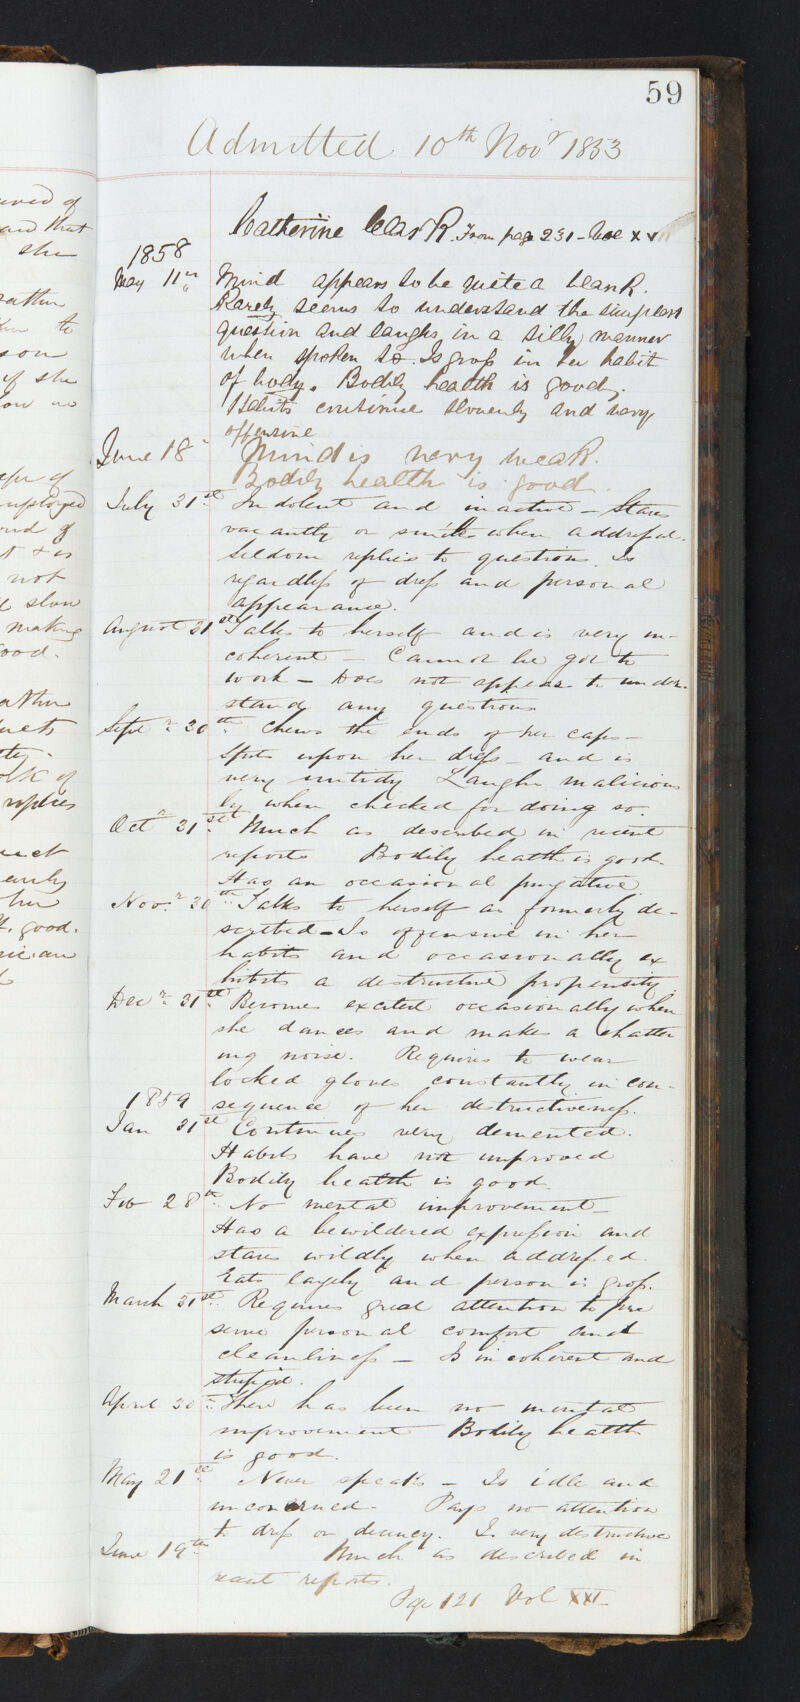 59
Admitted 10th Novr 1853
Catherine Clark. From page 231 - Vol XVII
1858
May 11th Mind appears to be quite a blank.
Rarely seems to understand the simplest
question and laughs in a silly manner
when spoken to. Is gross in her habit
of body. Bodily health is good.
Habits continue slovenly and very
offensive
June 18 Mind is very weak.
Bodily health is good
July 31st Indolent and inactive - Stares
vacantly or smiles when addressed.
Seldom replies to questions. Is
regardless of dress and personal
appearance.
August 31st Talks to herself and is very in-
coherent - Cannot be got to
work - Does not appear to under-
stand any questions
Septr 30th Chews the ends of her caps -
spits upon her dress - and is
very untidy Laughs malicious
ly when checked for doing so.
Octr 31st Much as described in recent
reports Bodily health is good.
Has an occasional purgative
Novr 30th Talks to herself as formerly de-
scribed - Is offensive in her
habits and occasionally ex
hibits a destructive propensity.
Decr 31st Becomes excited occasionally when
she dances and makes a chatter
ing noise. Requires to wear
locked gloves constantly in con-
sequence of her destructiveness.
1859
Jan 31st Continues very demented.
Habits have not improved
Bodily health is good.
Feb 28th No mental improvement -
Has a bewildered expression and
stares wildly when addressed.
Eats largely and person is gross.
March 31st Requires great attention to pre
serve personal comfort and
cleanliness - Is incoherent and
stupid.
April 30th There has been no mental
improvement Bodily health
is good.
May 21st Never speaks - Is idle and
unconcerned - Pays no attention
to dress or decency. Is very destructive
June 19th Much as described in
recent reports.
Pge 121 Vol XXI